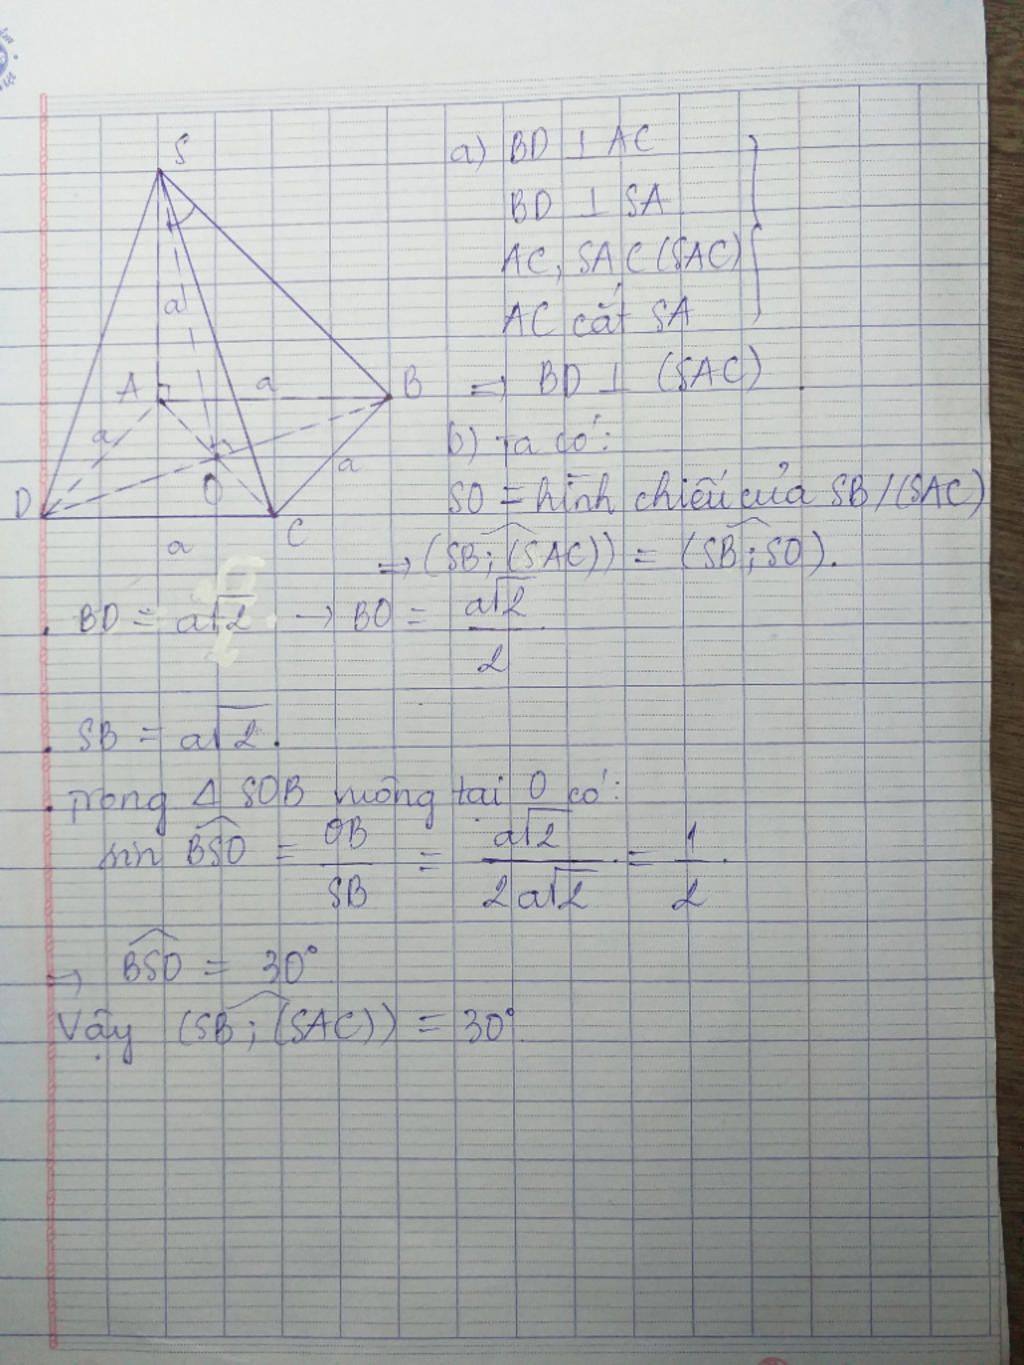 S
a
A
a
B
a
O
a
D
C
a
a) BD ⊥ AC
BD ⊥ SA
AC, SA ⊂ (SAC)
AC cắt SA
⇒ BD ⊥ (SAC)
b) Ta có:
SO = hình chiếu của SB/(SAC)
⇒ (SB; (SAC)) = (SB; SO).
. BD = a√2. → BO = a√2 / 2
. SB = a√2.
. Trong Δ SOB vuông tại O có:
sin BSO = OB / SB = a√2 / 2a√2 = 1 / 2.
⇒ BSO = 30°
Vậy (SB; (SAC)) = 30°.